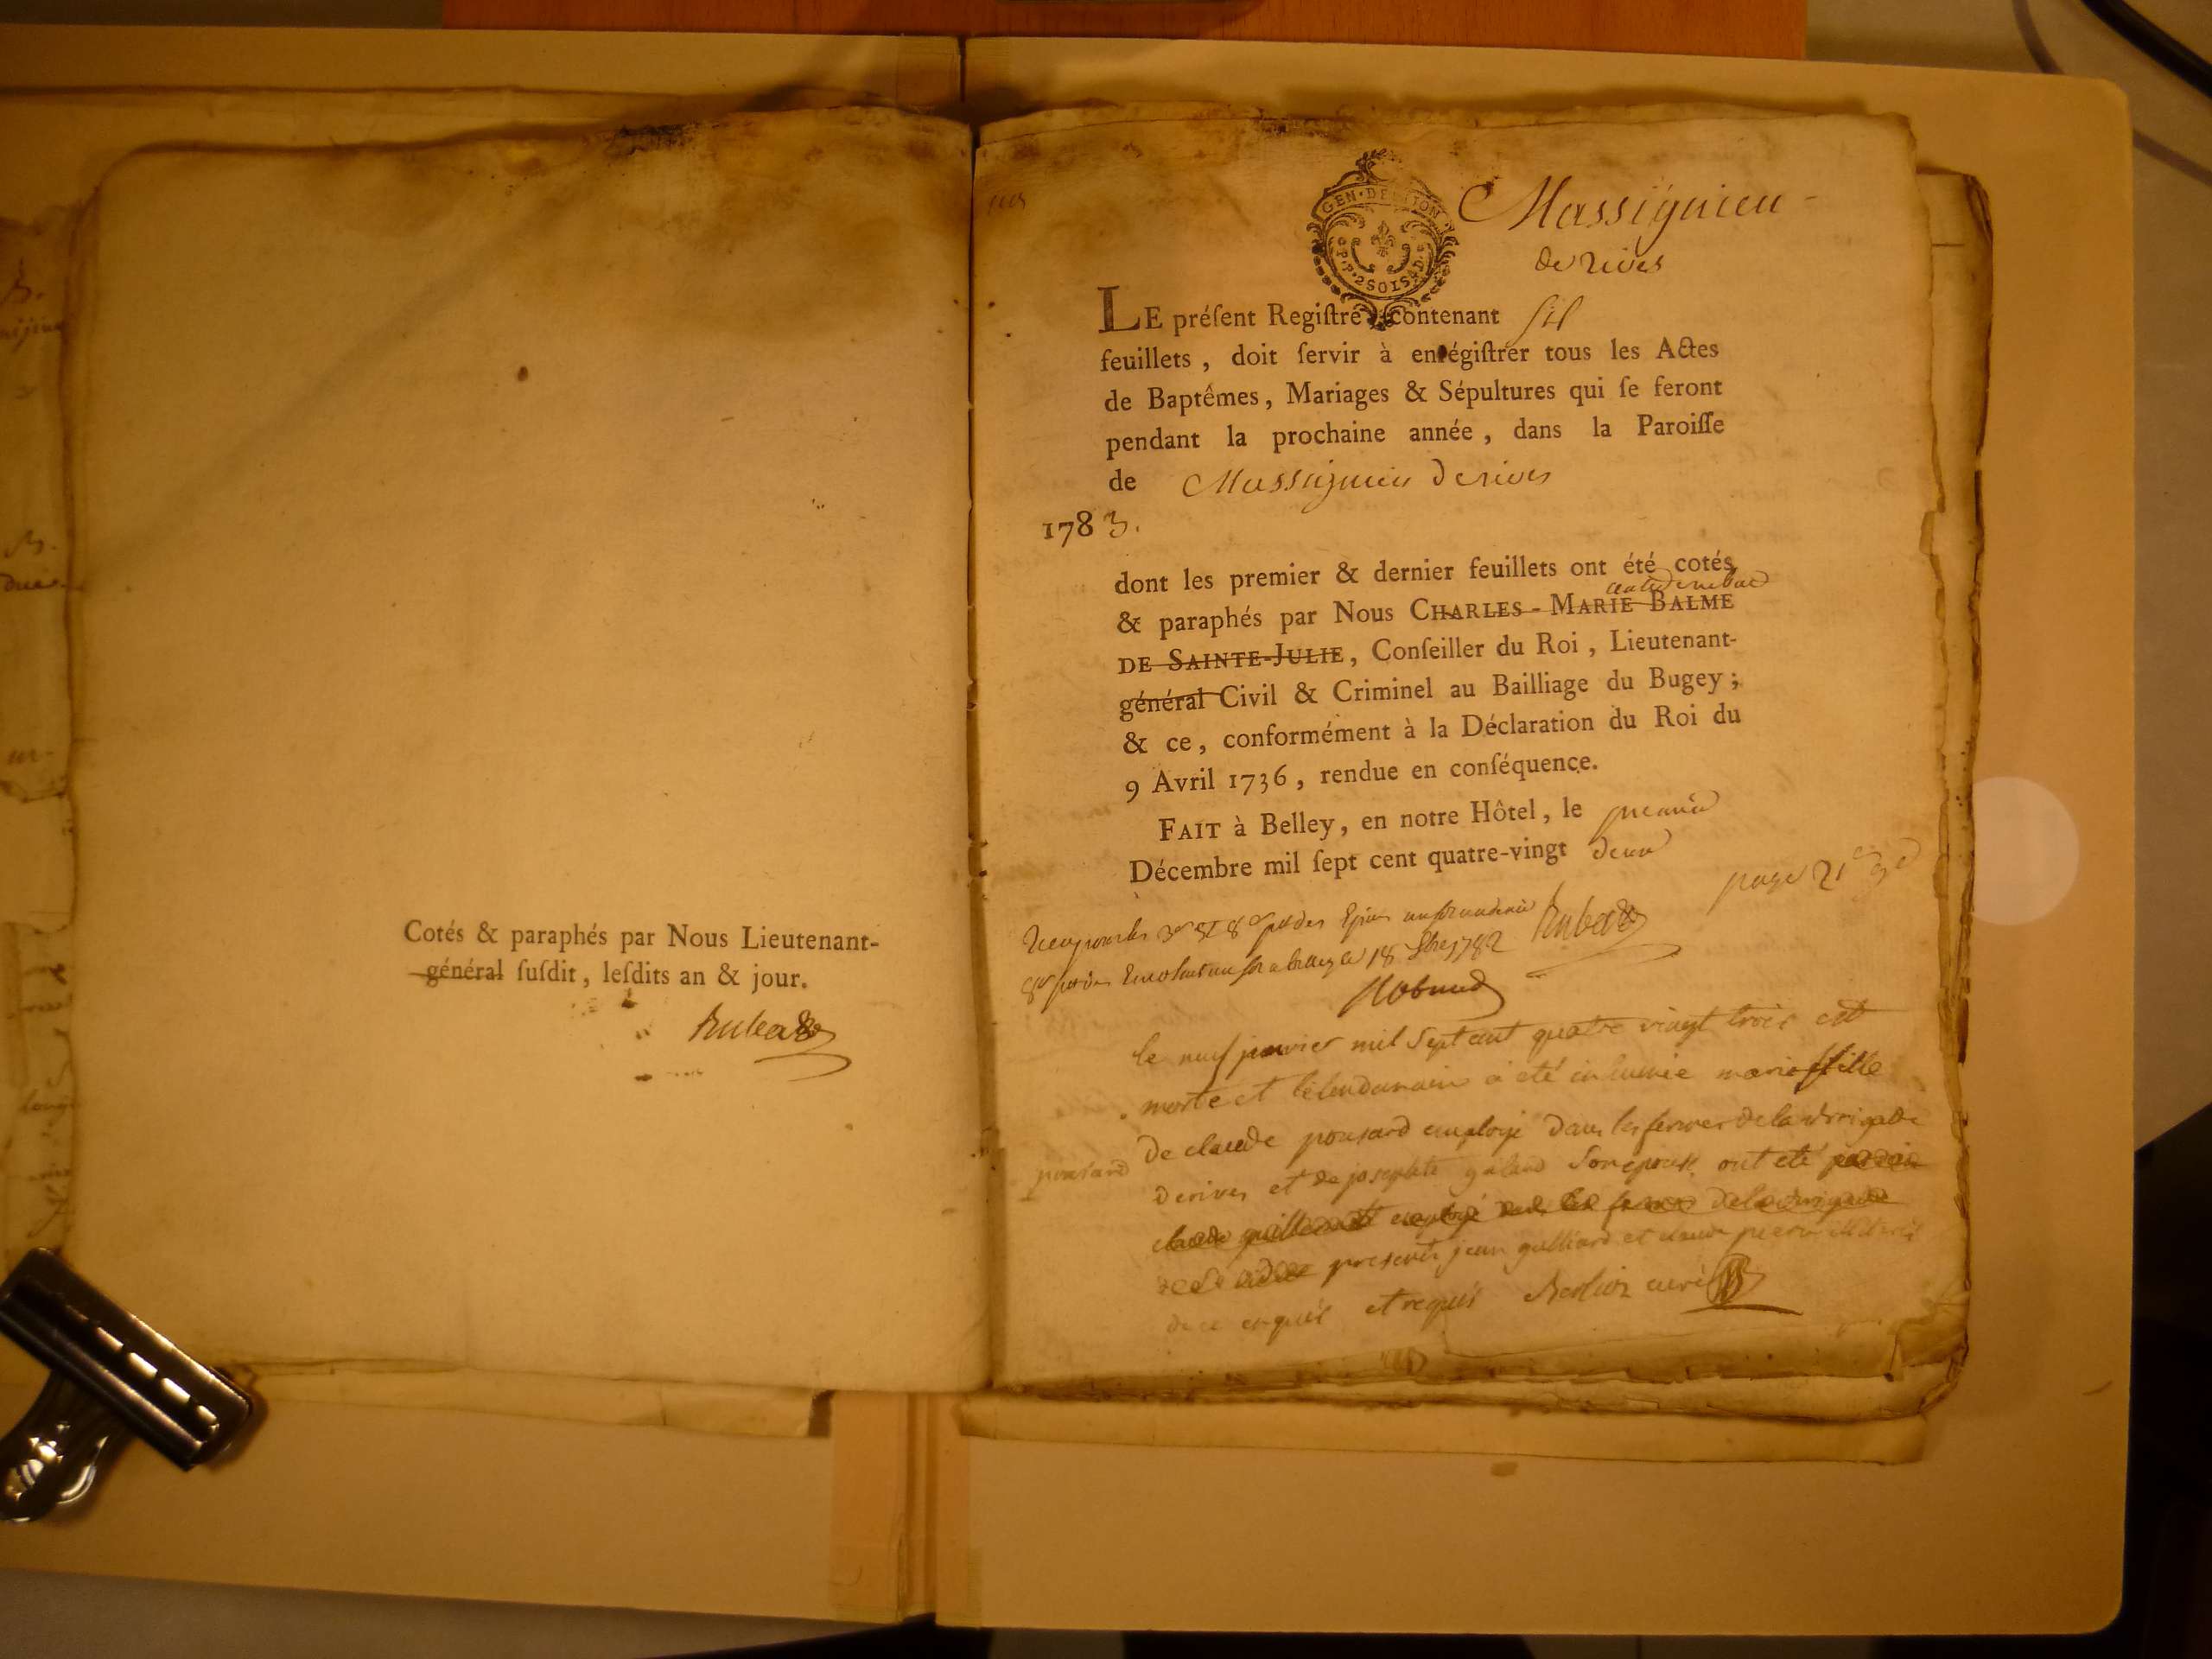 Cotés & paraphés par Nous Lieutenant-
général suſdit, leſdits an & jour.
GEN. DE DIJON
P.P. 2 SOLS 4 D.
Massignieu
de rives
LE préſent Regiſtre contenant six
feuillets, doit ſervir à enrégiſtrer tous les Actes
de Baptêmes, Mariages & Sépultures qui ſe feront
pendant la prochaine année, dans la Paroiſſe
de Massignieu de rives
1783.
dont les premier & dernier feuillets ont été cotés
& paraphés par Nous CHARLES-MARIE BALME
DE SAINTE-JULIE, Conſeiller du Roi, Lieutenant-
général Civil & Criminel au Bailliage du Bugey;
& ce, conformément à la Déclaration du Roi du
9 Avril 1736, rendue en conſéquence.
FAIT à Belley, en notre Hôtel, le premier
Décembre mil ſept cent quatre-vingt deux
page 21
le 18 1782
le neuf janvier mil sept cent quatre vingt trois est
morte et le lendemain a été inhumée marie fille
de claude ponsard employé dans les fermes de la brigade
ponsard
de rives et de josephte galand son epouse ont eté
claude employé dans les fermes de la brigade
presents jean galliard et claude
de ce enquis et requis Berlioz curé